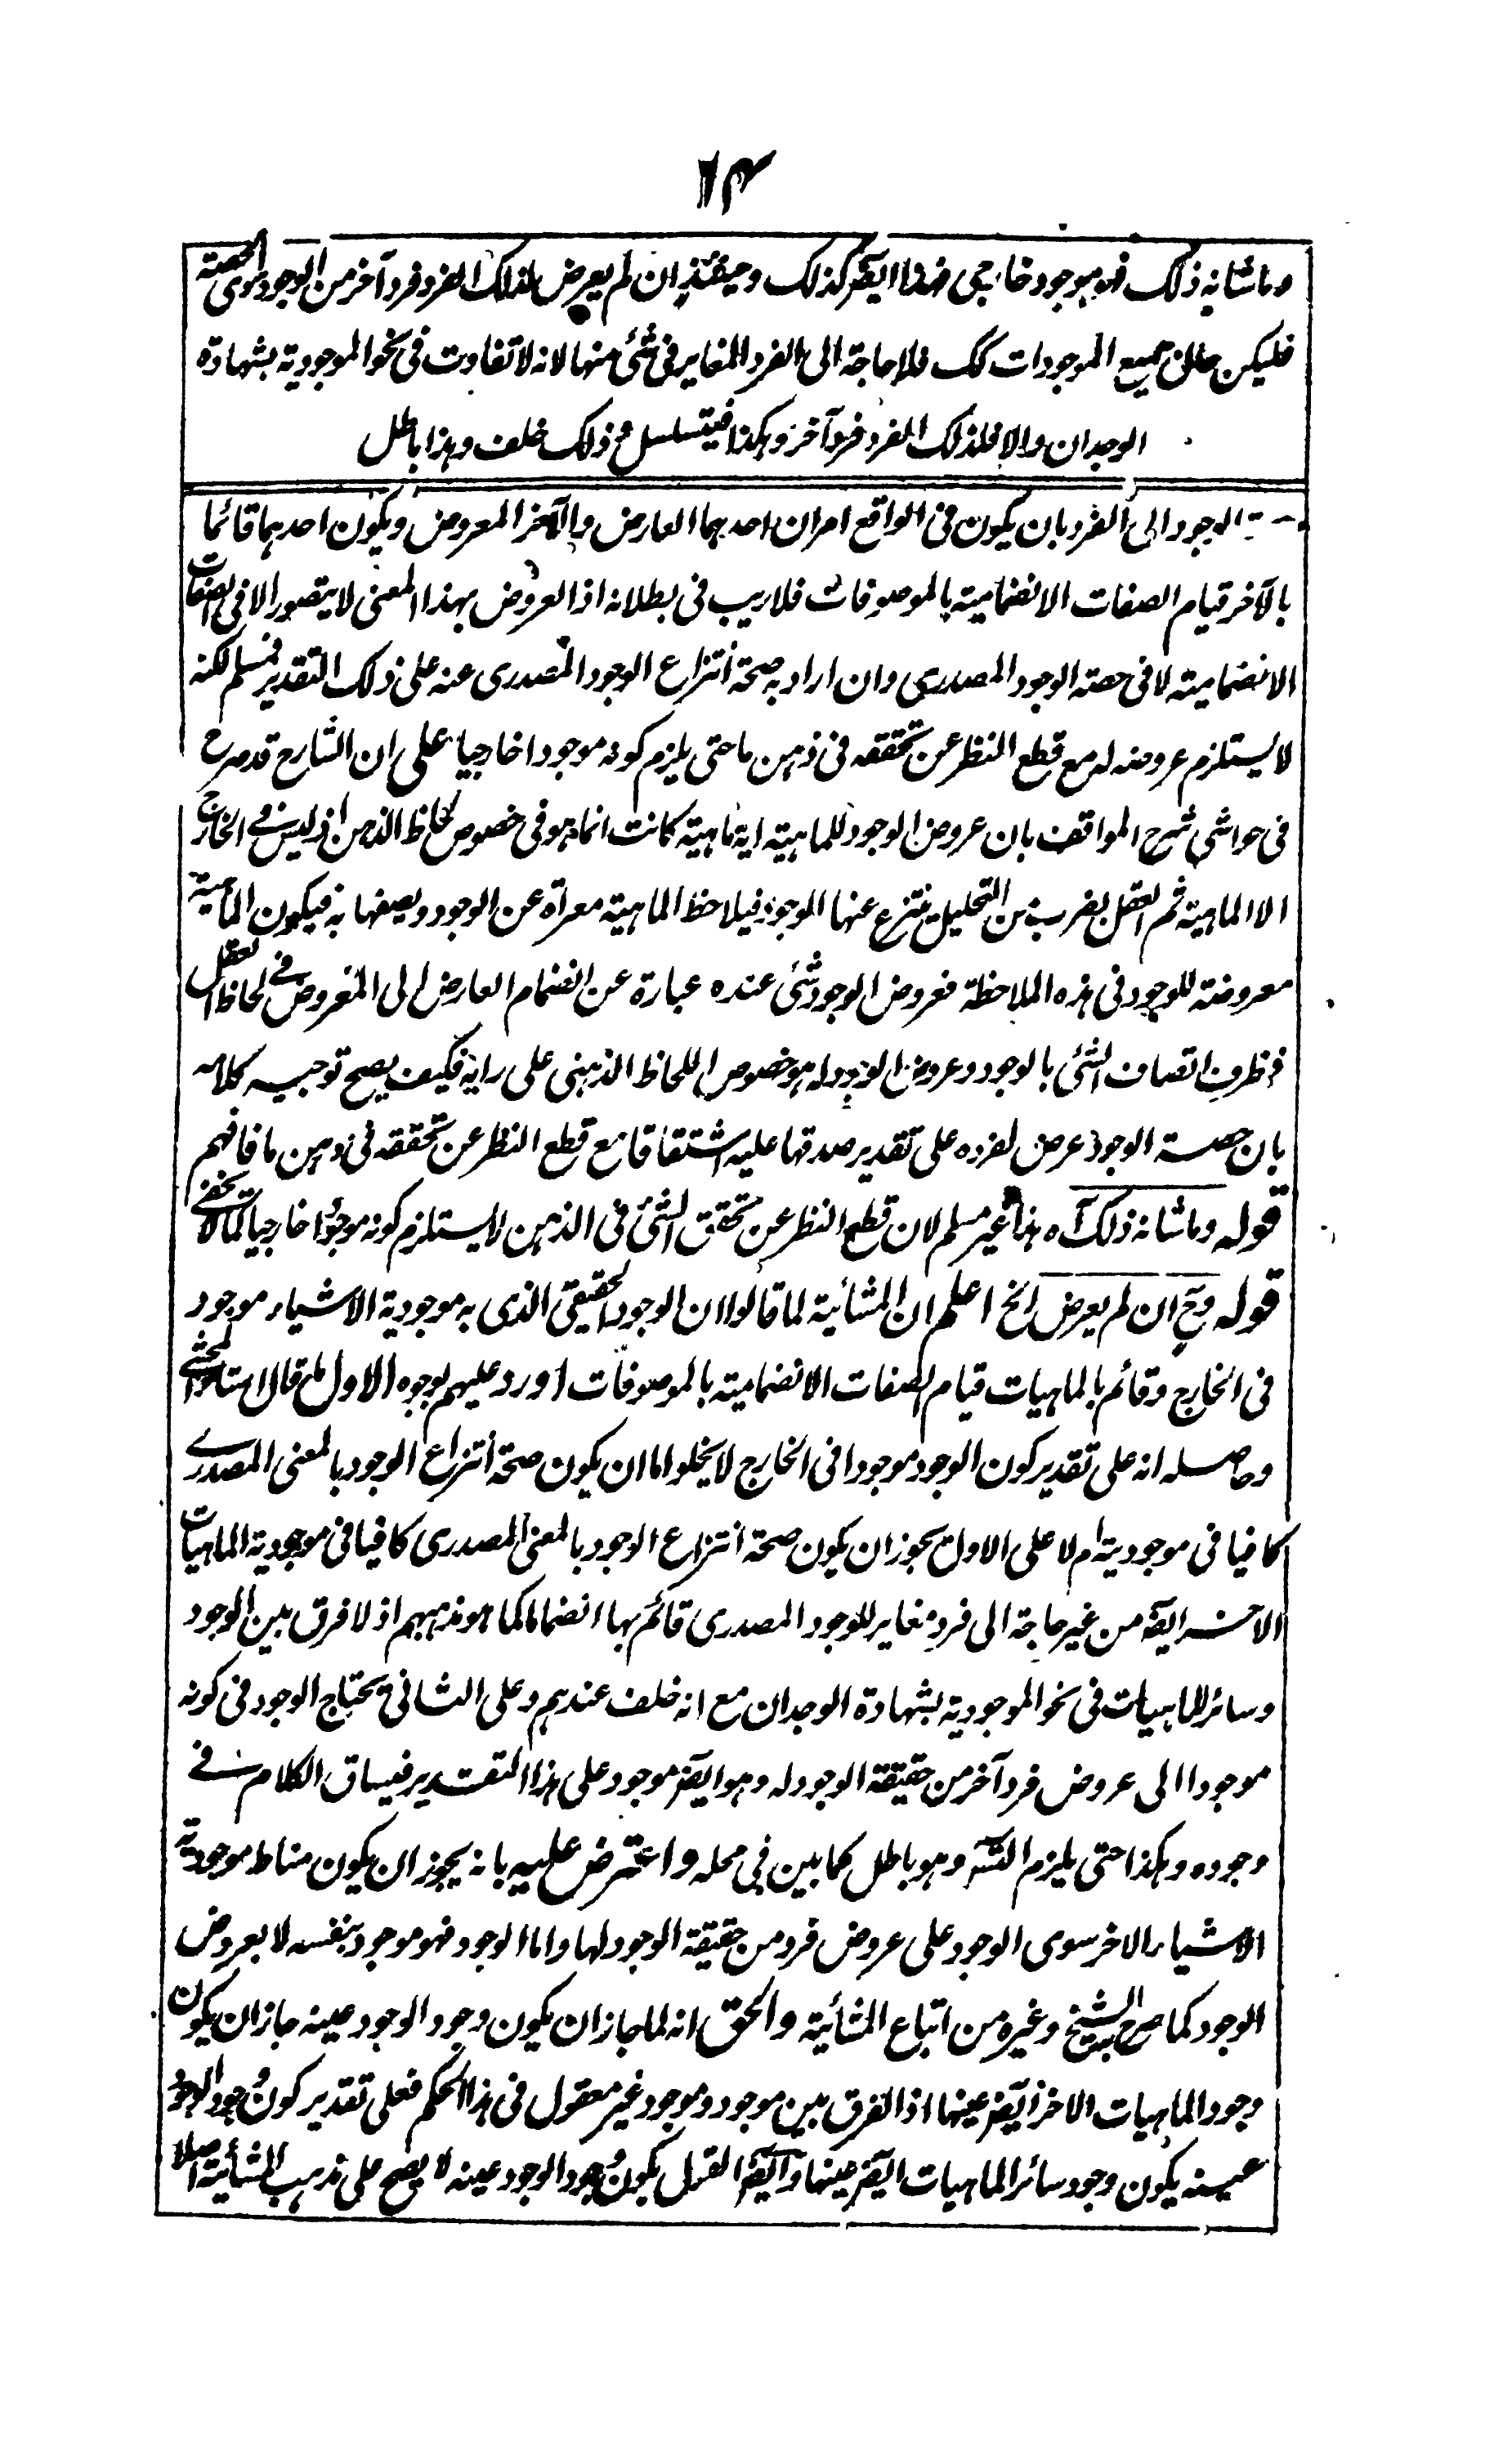 ١٣
وما شانه ذلك فهو موجود خارجى فهذا ايضا كذلك وحينئذ ان لم يعرض لذلك الفرد فرد آخر من الوجود سوى الحصة
فليكن حال جميع الموجودات كك فلا حاجة الى الفرد المغاير فى شئ منها لانه لا تفاوت فى نحو الموجودية بشهادة
الوجدان والا فلذلك الفرد فرد آخر وهكذا فيتسلسل مع ذلك خلف وهذا باطل
الوجود الى الفرد بان يكون فى الواقع امران احدهما العارض والآخر المعروض ويكون احدهما قائما
بالآخر قيام الصفات الانضمامية بالموصوفات فلا ريب فى بطلانه اذ العروض بهذا المعنى لا يتصور الا فى الصفات
الانضمامية لا فى حصته الوجود المصدرى وان اراد به صحة انتزاع الوجود المصدرى عنه على ذلك التقدير فمسلم لكنه
لا يستلزم عروضه له مع قطع النظر عن تحققه فى ذهن ما حتى يلزم كونه موجودا خارجيا على ان الشارح قد صرح
فى حواشى شرح المواقف بان عروض الوجود للماهية اية ماهية كانت انما هو فى خصوص لحاظ الذهن اذ ليس فى الخارج
الا الماهية ثم العقل بضرب من التحليل ينتزع عنها الوجود فيلاحظ الماهية معراة عن الوجود ويصفها به فيكون الماهية
معروضة للوجود فى هذه الملاحظة فعروض الوجود لشئ عنده عبارة عن انضمام العارض الى المعروض فى لحاظ العقل
فظرف اتصاف الشئ بالوجود وعروض الوجود له هو خصوص اللحاظ الذهنى على رايه فكيف يصح توجيه كلامه
بان حصة الوجود عرض لفرده على تقدير صدقها عليه اشتقاقا مع قطع النظر عن تحققه فى ذهن ما فافهم
قوله وما شانه ذلك آه هذا غير مسلم لان قطع النظر عن تحقق الشئ فى الذهن لا يستلزم كونه موجودا خارجيا كما لا يخفى
قوله وح ان لم يعرض الخ اعلم ان المشائية لما قالوا ان الوجود الحقيقى الذى به موجودية الاشياء موجود
فى الخارج وقائم بالماهيات قيام الصفات الانضمامية بالموصوفات اورد عليهم بوجوه الاول ما قال استاذ المحشى
وحاصله انه على تقدير كون الوجود موجودا فى الخارج لا يخلو اما ان يكون صحة انتزاع الوجود بالمعنى المصدرى
كافيا فى موجودية ام لا على الاول يجوز ان يكون صحة انتزاع الوجود بالمعنى المصدرى كافيا فى موجودية الماهيات
الاخر ايضا من غير حاجة الى فرد مغاير للوجود المصدرى قائم بها انضماما كما هو مذهبهم اذ لا فرق بين الوجود
وسائر الماهيات فى نحو الموجودية بشهادة الوجدان مع انه خلف عندهم وعلى الثانى يحتاج الوجود فى كونه
موجودا الى عروض فرد آخر من حقيقة الوجود له وهو ايضا موجود على هذا التقدير فيساق الكلام فى
وجوده وهكذا حتى يلزم التسه وهو باطل كما بين فى محله واعترض عليه بانه يجوز ان يكون مناط موجودية
الاشياء الاخر سوى الوجود على عروض فرد من حقيقة الوجود لها واما الوجود فهو موجود بنفسه لا بعروض
الوجود كما صرح به الشيخ وغيره من اتباع المشائية والحق انه لما جاز ان يكون وجود الوجود عينه جاز ان يكون
وجود الماهيات الاخر ايضا عينها اذ الفرق بين موجود وموجود غير معقول فى هذا الحكم فعلى تقدير كون وجود الوجود
عينه يكون وجود سائر الماهيات ايضا عينها وايضا القول بكون وجود الوجود عينه لا يصح على مذهب المشائية اصلا